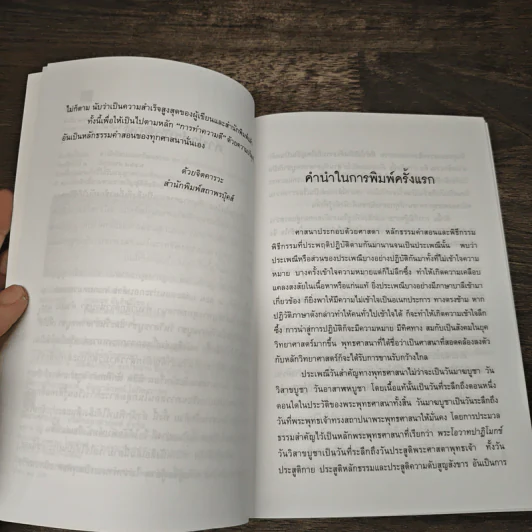 ไม่ก็ตาม นับว่าเป็นความสำเร็จสูงสุดของผู้เขียนและสำนักพิมพ์
ทั้งนี้เพื่อให้เป็นไปตามหลัก “การทำความดี”
อันเป็นหลักธรรมคำสอนของทุกศาสนานั่นเอง
ด้วยจิตคารวะ
สำนักพิมพ์สถาพรบุ๊คส์
คำนำในการพิมพ์ครั้งแรก
ศาสนาประกอบด้วยศาสดา หลักธรรมคำสอนและพิธีกรรม
พิธีกรรมที่ประพฤติปฏิบัติตามกันมานานจนเป็นประเพณีนั้น พบว่า
ประเพณีหรือส่วนของประเพณีบางอย่างปฏิบัติกันมาทั้งที่ไม่เข้าใจความ
หมาย บางครั้งเข้าใจความหมายแต่ก็ไม่ลึกซึ้ง ทำให้เกิดความเคลือบ
แคลงสงสัยในเนื้อหาหรือแก่นแท้ ยิ่งประเพณีบางอย่างมีภาษาบาลีเข้ามา
เกี่ยวข้อง ก็ยิ่งพาให้มีความไม่เข้าใจเป็นอเนกประการ ทางตรงข้าม หาก
ปฏิวัติภาษาดังกล่าวให้คนทั่วไปเข้าใจได้ ก็จะทำให้เกิดความเข้าใจลึก
ซึ้ง การนำสู่การปฏิบัติก็จะมีความหมาย มีทิศทาง สมกับเป็นสังคมในยุค
วิทยาศาสตร์มากขึ้น พุทธศาสนาที่ได้ชื่อว่าเป็นศาสนาที่สอดคล้องลงตัว
กับหลักวิทยาศาสตร์ก็จะได้รับการขานรับกว้างไกล
ประเพณีวันสำคัญทางพุทธศาสนาไม่ว่าจะเป็นวันมาฆบูชา วัน
วิสาขบูชา วันอาสาฬหบูชา โดยเนื้อแท้นั้นเป็นวันที่ระลึกถึงตอนหนึ่ง
ตอนใดในประวัติของพระพุทธศาสนาทั้งสิ้น วันมาฆบูชาเป็นวันระลึกถึง
วันที่พระพุทธเจ้าทรงสถาปนาพระพุทธศาสนาให้มั่นคง โดยการประมวล
ธรรมสำคัญไว้เป็นหลักพระพุทธศาสนาที่เรียกว่า พระโอวาทปาฏิโมกข์
วันวิสาขบูชาเป็นวันที่ระลึกถึงวันประสูติพระศาสดาพุทธเจ้า ทั้งวัน
ประสูติกาย ประสูติหลักธรรมและประสูติความดับสูญสังขาร อันเป็นการ